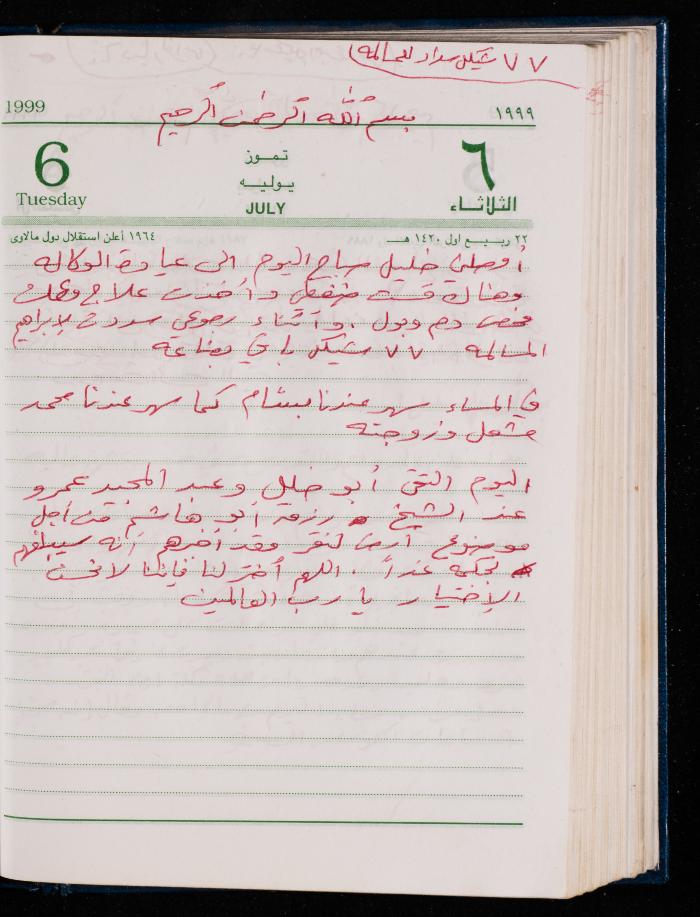 ٧٧ شيكل سداد للمسالمه
1999 ١٩٩٩
بسم الله الرحمن الرحيم
6 تمـوز ٦
يـوليـه
Tuesday JULY الثلاثاء
١٩٦٤ أعلن استقلال دول مالاوي ٢٢ ربـيـع اول ١٤٢٠ هـ
أوصلني خليل صباح اليوم الى عيادة الوكاله
وهناك قست ضغطي وأخذت علاج وعملت
فحص دم وبول . وأثناء رجوعي سددت لإبراهيم
المسالمه ٧٧ شيكل باقي بضاعة
في المساء سهر عندنا بسام كما سهر عندنا محمد
مشعل وزوجته
اليوم التقى أبو خليل وعبد المجيد عمرو
عند الشيخ رزمة أبو هاشم من أجل
موضوع أرض لنقر فقد أخبرهم أنه سيبلغهم
بحكمه غداً . اللهم أختر لنا فإننا لا نحسن
الإختيار يا رب العالمين